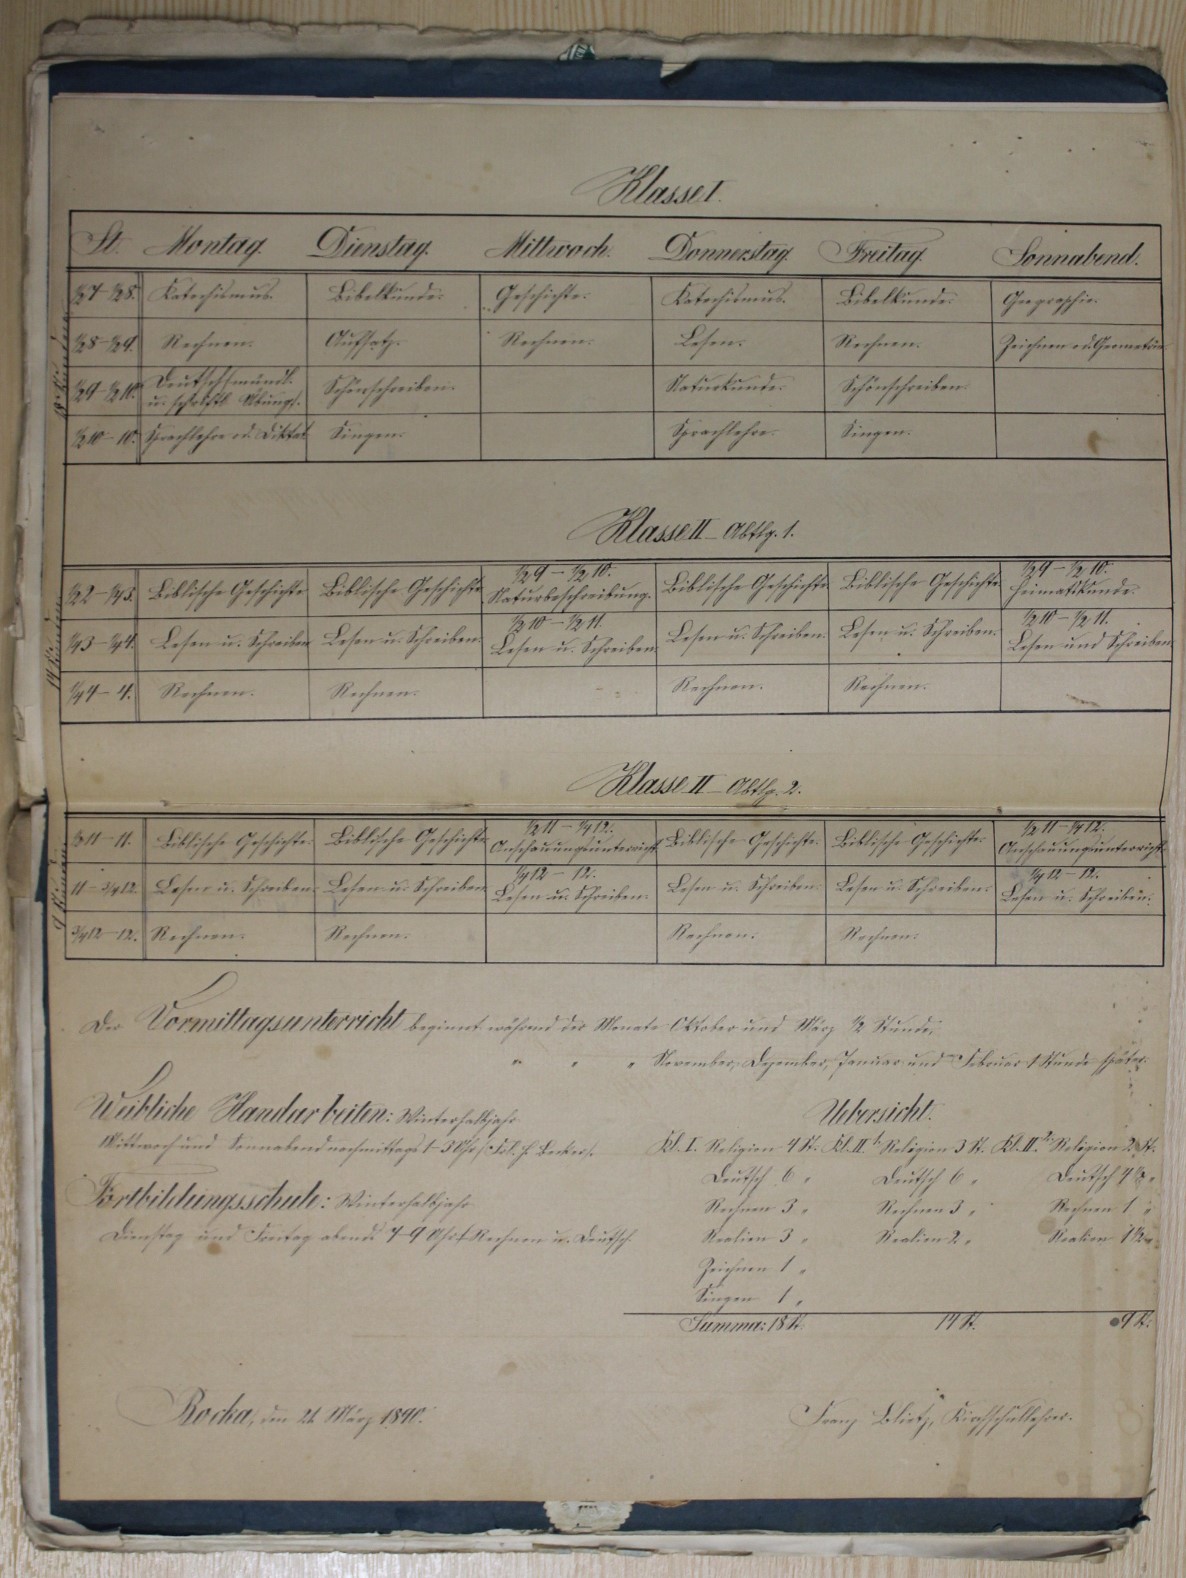 Klasse I.
St. Montag. Dienstag. Mittwoch. Donnerstag. Freitag. Sonnabend.
½7–½8. Katechismus. Bibelkunde. Geschichte. Katechismus. Bibelkunde. Geographie.
½8–½9. Rechnen. Aufsatz. Rechnen. Lesen. Rechnen. Zeichnen od. Geometrie
½9–½10. Deutsch mündl. u. schriftl. Übungs. Schönschreiben. Naturkunde. Schönschreiben.
½10–10. Sprachlehre od. Diktat Singen. Sprachlehre. Singen.
18 Stunden
Klasse II – Abtlg. 1.
½2–¼3. Biblische Geschichte Biblische Geschichte ½9–½10. Naturbeschreibung. Biblische Geschichte Biblische Geschichte ½9–½10. Heimatskunde.
¼3–¼4. Lesen u. Schreiben Lesen u. Schreiben. ½10–½11. Lesen u. Schreiben Lesen u. Schreiben. Lesen u. Schreiben. ½10–½11. Lesen und Schreiben
¼4–4. Rechnen. Rechnen. Rechnen. Rechnen.
14 Stunden
Klasse II – Abtlg. 2.
½11–11. Biblische Geschichte. Biblische Geschichte ½11–¼12. Anschauungsunterricht Biblische Geschichte. Biblische Geschichte. ½11–¼12. Anschauungsunterricht
11–¾12. Lesen u. Schreiben. Lesen u. Schreiben ¼12–12. Lesen u. Schreiben. Lesen u. Schreiben. Lesen u. Schreiben. ¼12–12. Lesen u. Schreiben.
¾12–12. Rechnen. Rechnen. Rechnen. Rechnen.
9 Stunden
Der Vormittagsunterricht beginnt während der Monate Oktober und März ½ Stunde,
" " " November, Dezember, Januar und Februar 1 Stunde später.
Weibliche Handarbeiten: Winterhalbjahr
Mittwoch und Sonnabend nachmittags 1–3 Uhr
Fortbildungsschule: Winterhalbjahr
Dienstag und Freitag abends 7–9 Uhr Rechnen u. Deutsch.
Uebersicht.
Kl. I. Religion 4 St. Kl. II 1. Religion 3 St. Kl. II 2. Religion 2 St.
Deutsch 6 " Deutsch 6 " Deutsch 4½ "
Rechnen 3 " Rechnen 3 " Rechnen 1 "
Realien 3 " Realien 2 " Realien 1½ "
Zeichnen 1 "
Singen 1 "
Summa: 18 St. 14 St. 9 St.
Rocka, den 21. März 1890.
Franz Blietz, Kirchschullehrer.